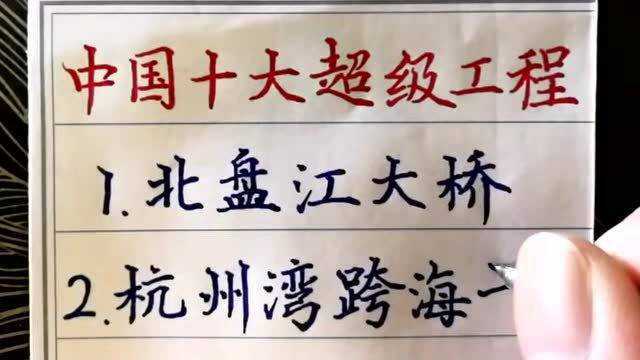 中国十大超级工程
1.北盘江大桥
2.杭州湾跨海